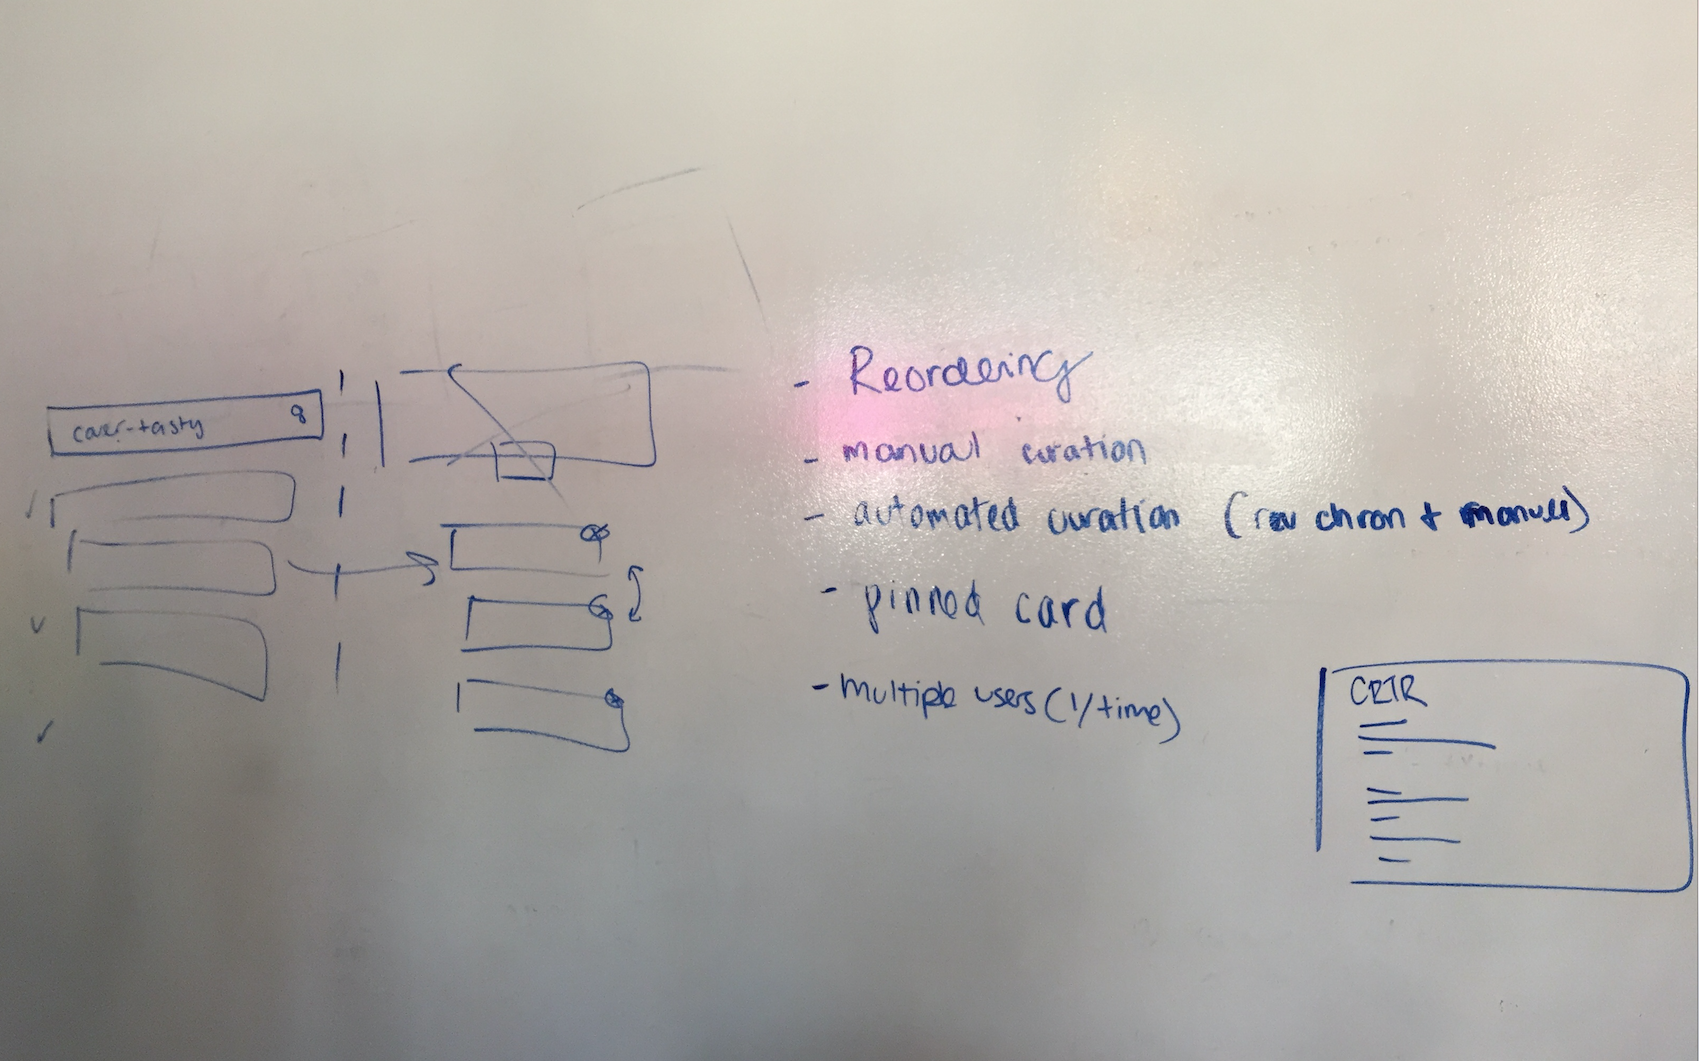 cover-tasty
- Reordering
- manual curation
- automated curation (rev chron + manual)
- pinned card
- multiple users (1/time)